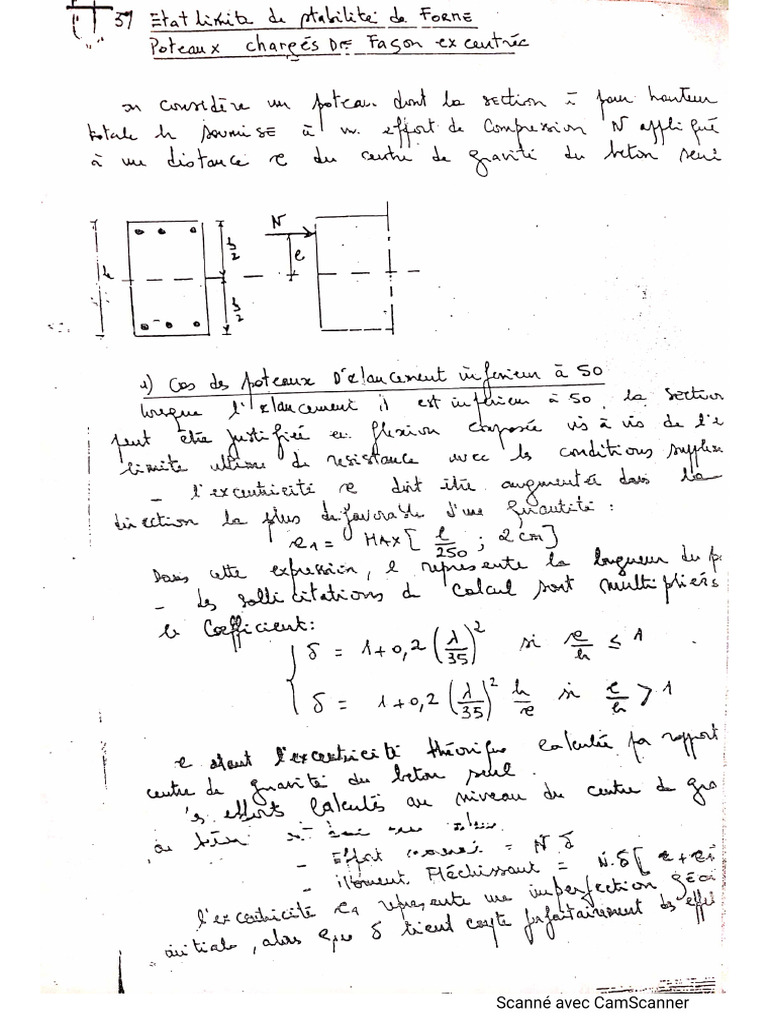 37 Etat limite de stabilité de FORME
Poteaux chargés DE Façon excentrée
on considère un poteau dont la section à pour hauteur
totale h soumise à un effort de compression N appliqué
à une distance e du centre de gravité du beton seul
N
h
h/2
h/2
e
1) Cas des poteaux D'elancement inferieur à 50
lorsque l'elancement il est inferieur à 50, la section
peut être justifiée en flexion composée vis à vis de l'e
limite ultime de resistance avec les conditions supplem
- l'excentricité e doit être augmentée dans la
direction la plus defavorable d'une quantité :
e1 = MAX [ l/250 ; 2cm]
Dans cette expression, l represente la longueur du p
- les sollicitations de calcul sont multipliers
le coefficient:
δ = 1+0,2 (λ/35)² si e/h ≤ 1
δ = 1+0,2 (λ/35)² h/e si e/h > 1
e étant l'excentricité théorique calculée par rapport
centre de gravité du beton seul.
es efforts calculés au niveau du centre de gra
du béton
- Effort normal = N δ
- Moment Fléchissant = N.δ [ e + e1
l'excentricité e1 represente une imperfection géo
initiale, alors que δ tient compte forfaitairement des effe
Scanné avec CamScanner